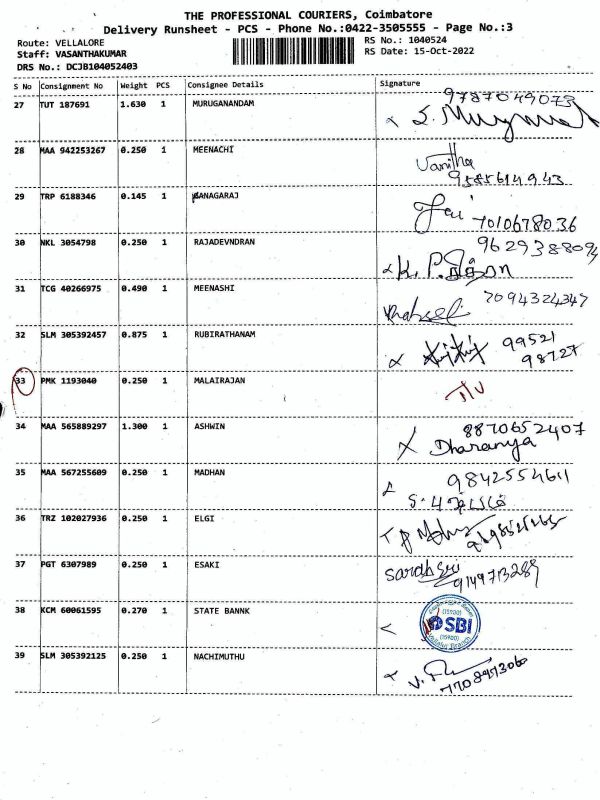 THE PROFESSIONAL COURIERS, Coimbatore
Delivery Runsheet - PCS - Phone No.:0422-3505555 - Page No.:3
Route: VELLALORE
RS No.: 1040524
Staff: VASANTHAKUMAR
RS Date: 15-Oct-2022
DRS No.: DCJB104052403
S No Consignment No Weight PCS Consignee Details Signature
9787049073
27 TUT 187691 1.630 1 MURUGANANDAM
28 MAA 942253267 0.250 1 MEENACHI
Vanitha
9585614943
29 TRP 6188346 0.145 1 KANAGARAJ
7010678036
30 NKL 3054798 0.250 1 RAJADEVNDRAN
9629388094
31 TCG 40266975 0.490 1 MEENASHI
7094324347
32 SLM 305392457 0.875 1 RUBIRATHANAM
99521
98727
33 PMK 1193040 0.250 1 MALAIRAJAN
34 MAA 565889297 1.300 1 ASHWIN
8870652407
Dharanya
35 MAA 567255609 0.250 1 MADHAN
9842554611
36 TRZ 102027936 0.250 1 ELGI
37 PGT 6307989 0.250 1 ESAKI
38 KCM 60061595 0.270 1 STATE BANNK
(15900)
SBI
(15900)
Vellalur Branch
39 SLM 305392125 0.250 1 NACHIMUTHU
7708973060